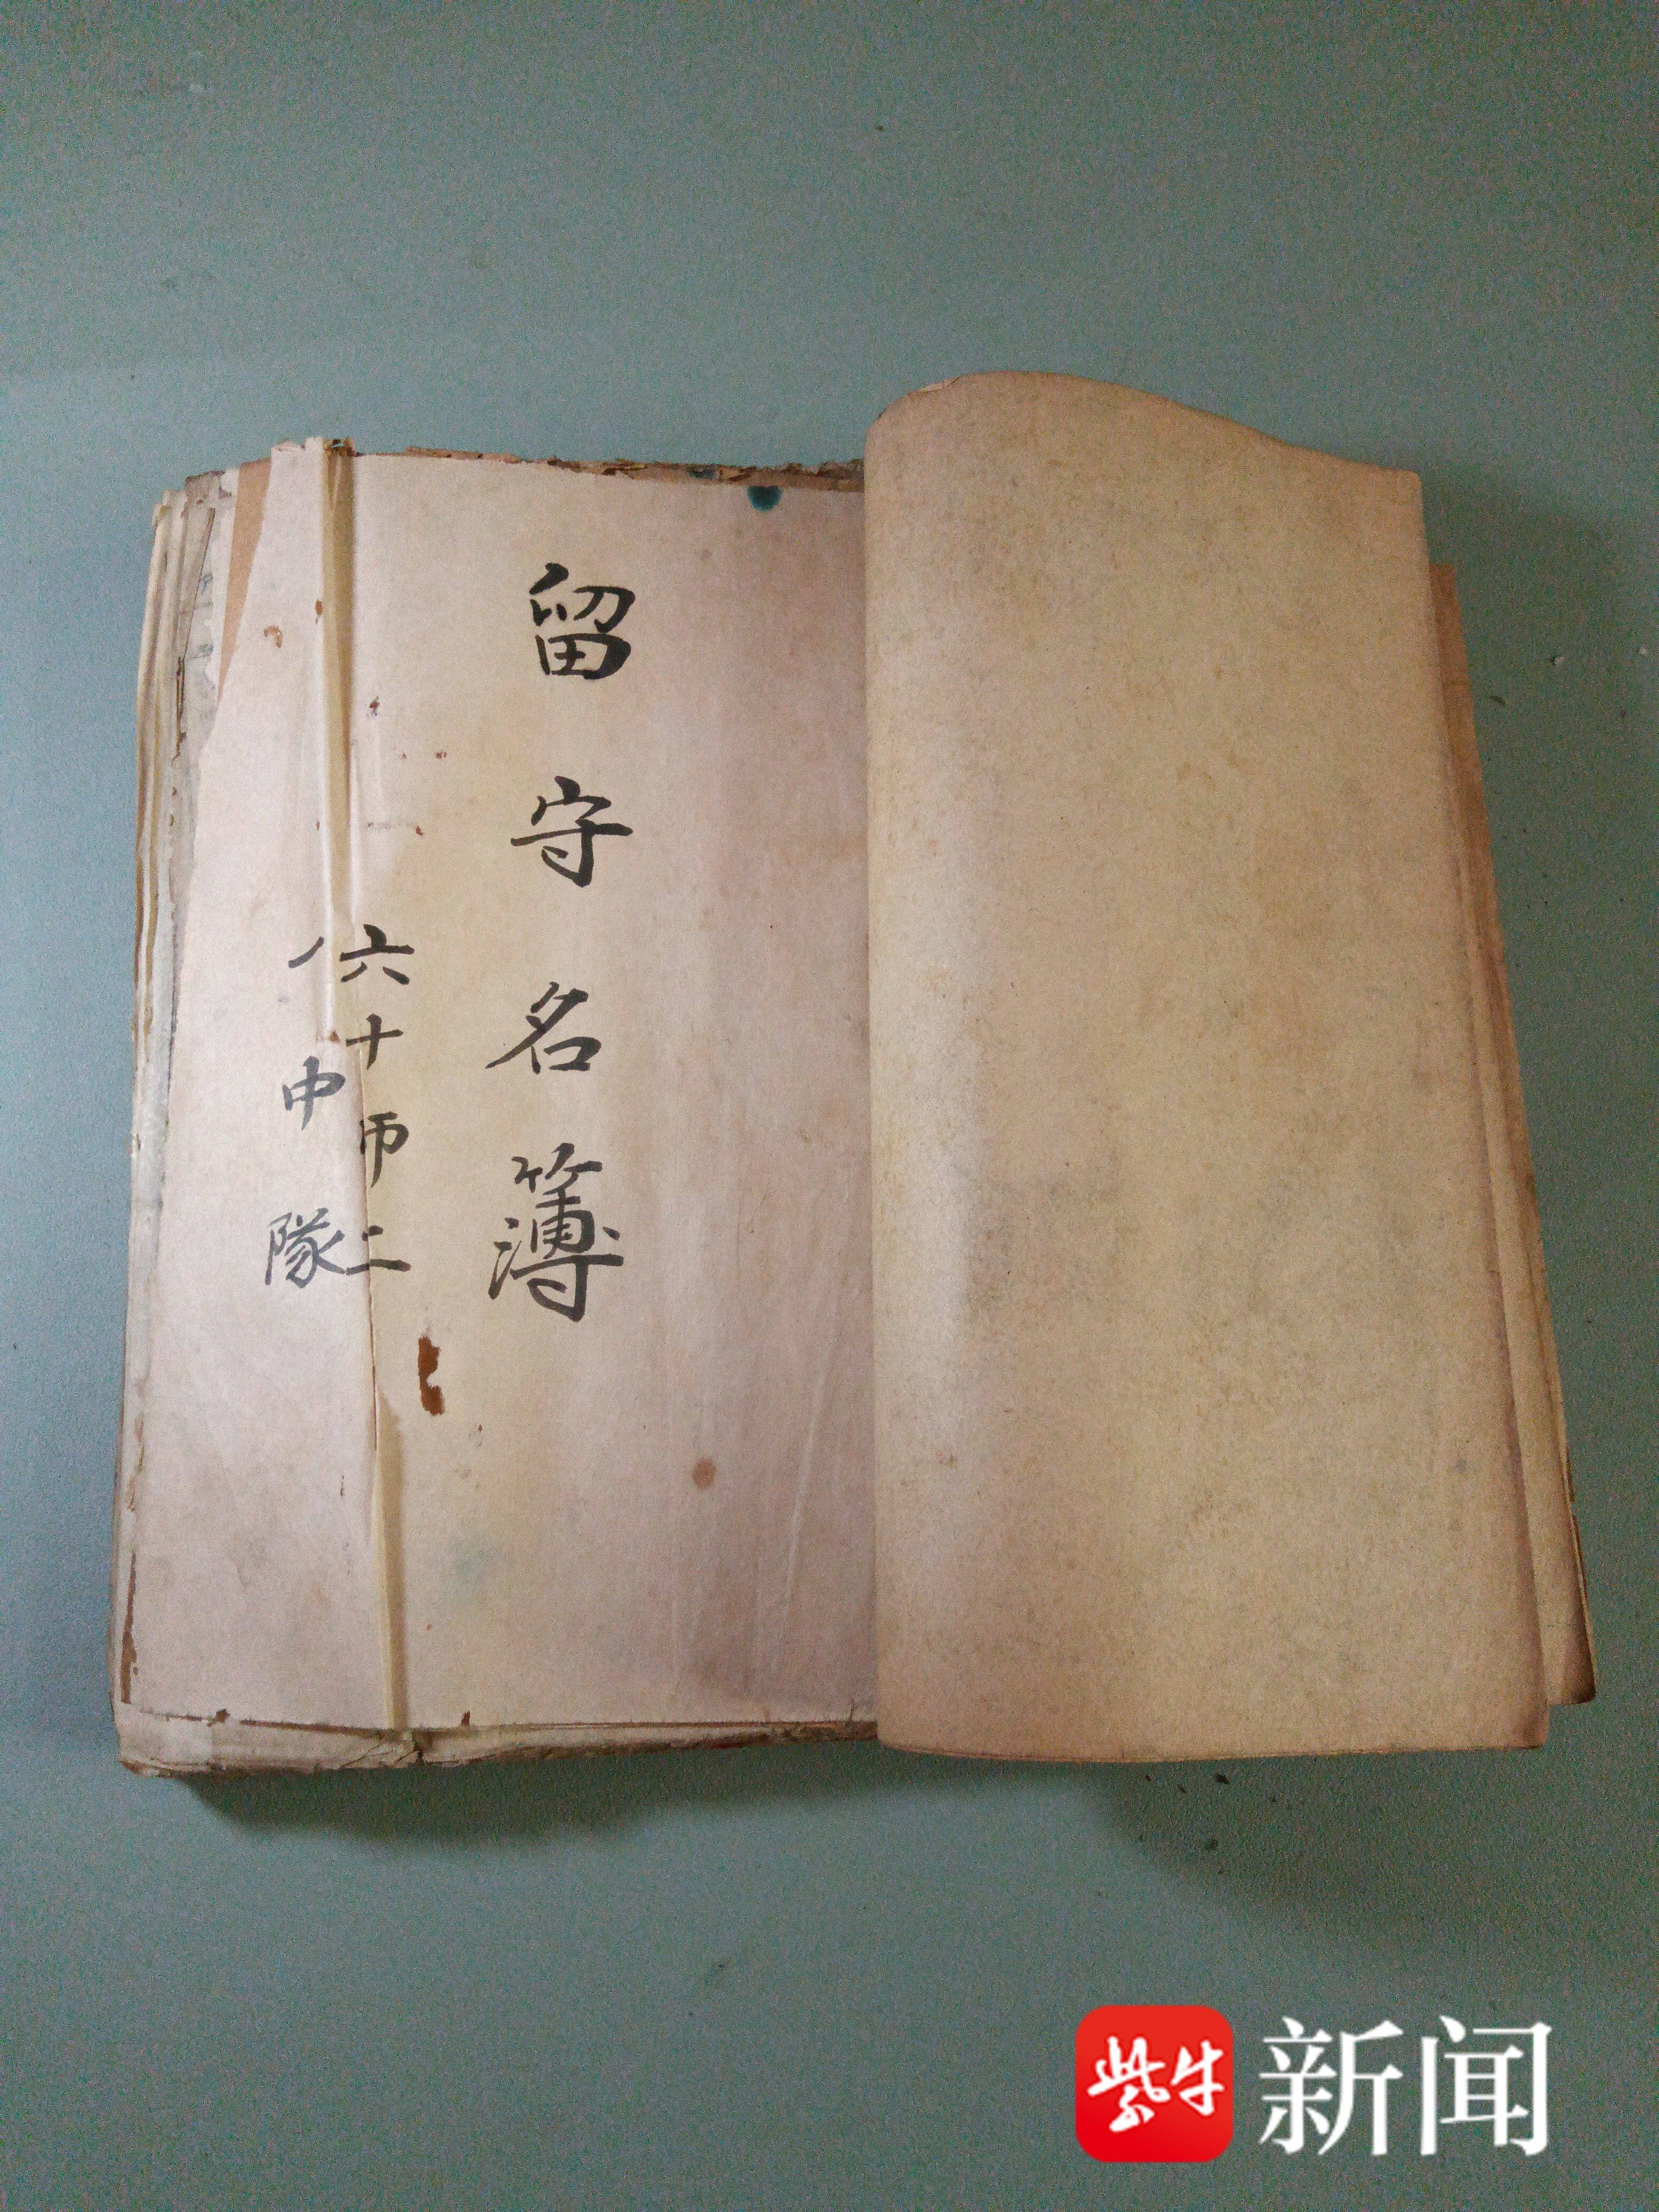 留守名簿
六十帀二
中隊
紫牛新闻